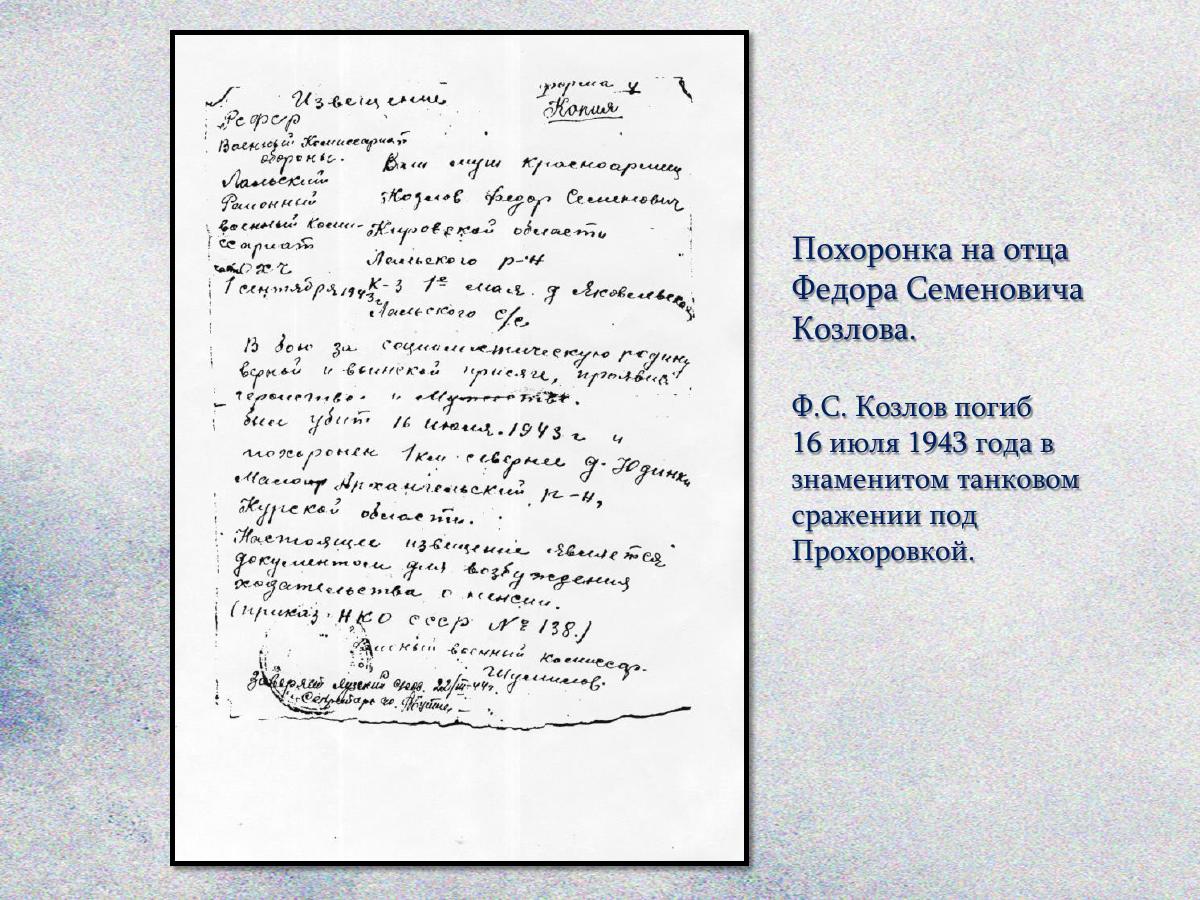 Извещение
форма 4
Копия
РСФСР
Военный Комиссариат
обороны.
Лальский
Районный
военный Коми-
ссариат
часть ОХЧ
1 сентября 1943 г.
Ваш муж красноармеец
Козлов Федор Семенович
Кировской области
Лальского р-н
К-з 1е мая д Яковлевской
Лальского с/с
В бою за социалистическую родину
верной и воинской присяге, проявив
геройство и Мужество.
был убит 16 июля.1943 г и
похоронен 1км севернее д. Юдинки
Мало Архангельский р-н,
Курской области.
Настоящее извещение является
документом для возбуждения
ходательства о пенсии.
(приказ НКО СССР № 138.)
военный комиссар.
Шумилов.
Заверяет Лузский 22/III-44г.
Секретарь
Похоронка на отца
Федора Семеновича
Козлова.
Ф.С. Козлов погиб
16 июля 1943 года в
знаменитом танковом
сражении под
Прохоровкой.